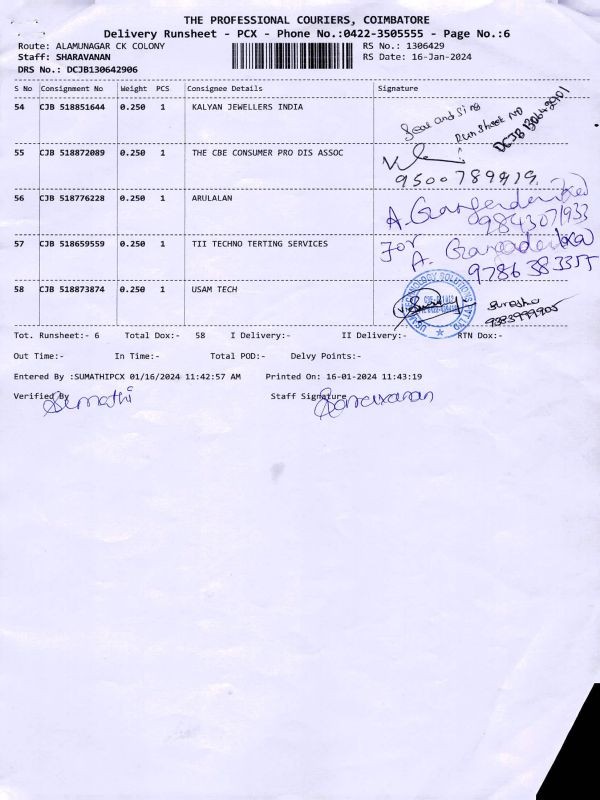 THE PROFESSIONAL COURIERS, COIMBATORE
Delivery Runsheet - PCX - Phone No.:0422-3505555 - Page No.:6
Route: ALAMUNAGAR CK COLONY RS No.: 1306429
Staff: SHARAVANAN RS Date: 16-Jan-2024
DRS No.: DCJB130642906
S No Consignment No Weight PCS Consignee Details Signature
54 CJB 518851644 0.250 1 KALYAN JEWELLERS INDIA
Seal and Sing
Runsheet NO
55 CJB 518872089 0.250 1 THE CBE CONSUMER PRO DIS ASSOC
9500789919
56 CJB 518776228 0.250 1 ARULALAN
A.
9843071933
57 CJB 518659559 0.250 1 TII TECHNO TERTING SERVICES
For
A.
58 CJB 518873874 0.250 1 USAM TECH
Tot. Runsheet:- 6 Total Dox:- 58 I Delivery:- II Delivery:- RTN Dox:-
Out Time:- In Time:- Total POD:- Delvy Points:-
Entered By :SUMATHIPCX 01/16/2024 11:42:57 AM Printed On: 16-01-2024 11:43:19
Verified By Sumathi Staff Signature Saravanan